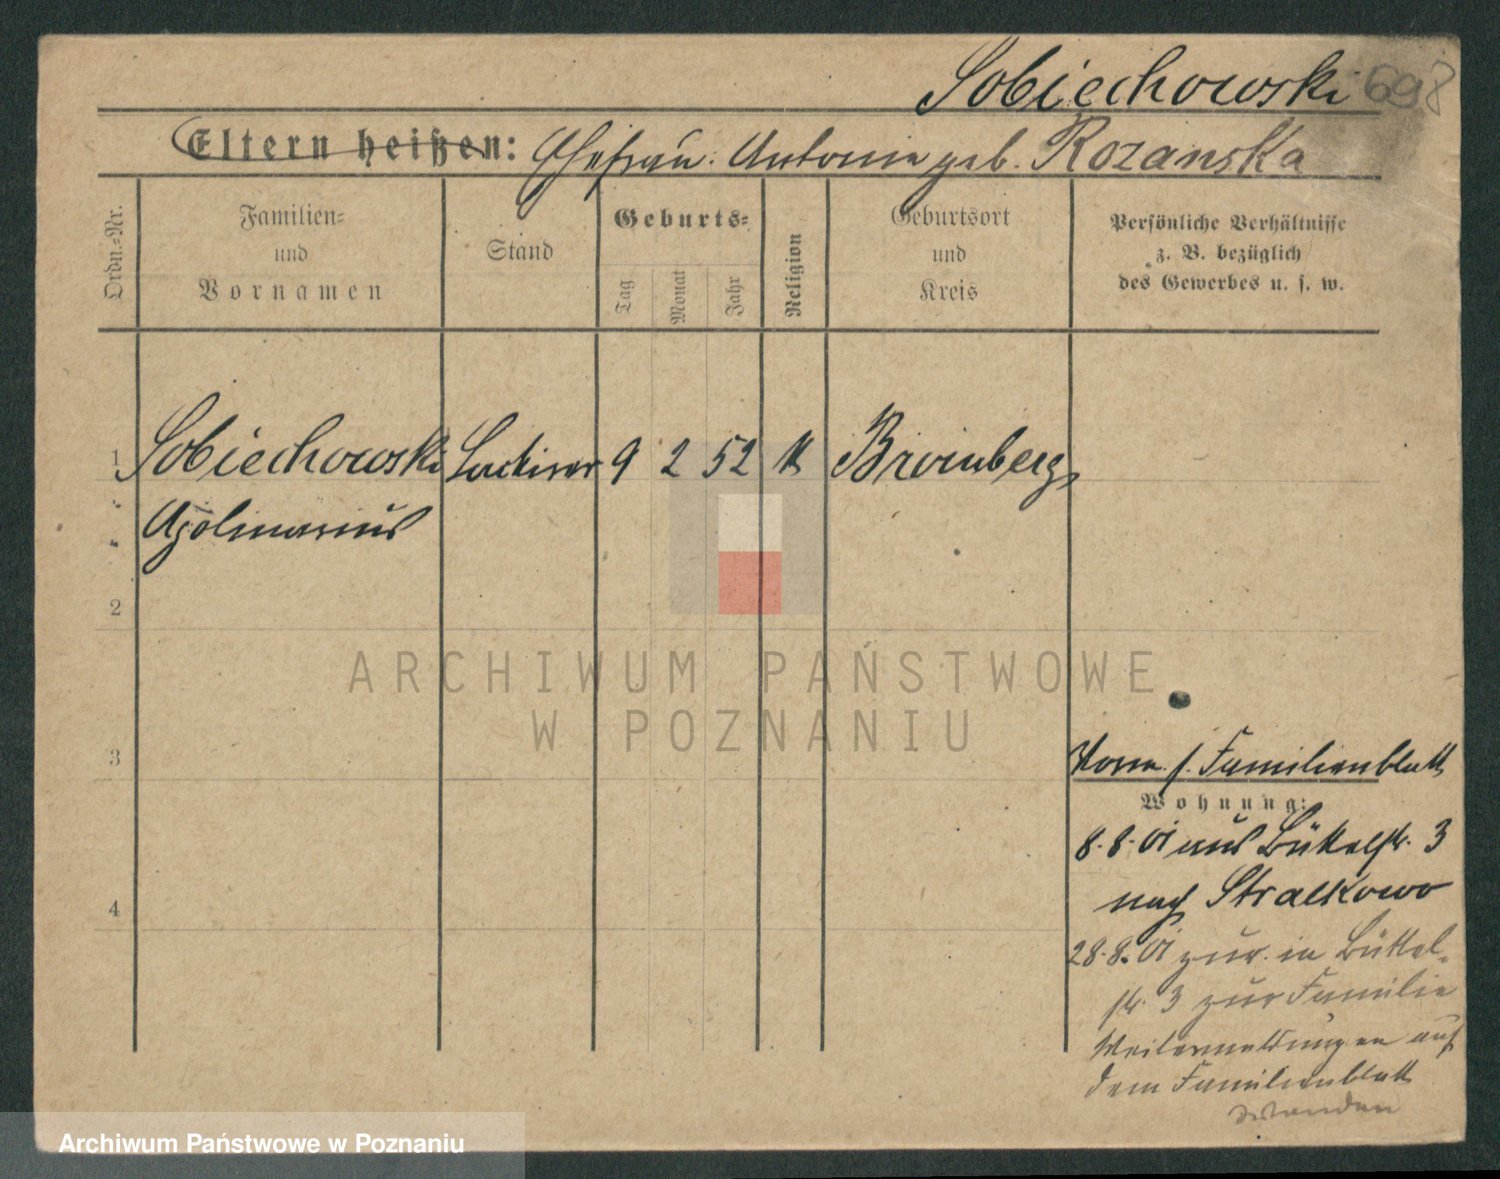 Sobiechowski 698
Eltern heißen: Ehefrau: Antonie geb. Rozanska
Ordn.-Nr.
Familien-
und
Vornamen
Stand
Geburts-
Tag
Monat
Jahr
Religion
Geburtsort
und
Kreis
Persönliche Verhältnisse
z. B. bezüglich
des Gewerbes u. s. w.
1 Sobiechowski Lackirer 9 2 52 k Bromberg
Apolinarius
2
3
4
Vorm. s. Familienblatt
Wohnung:
8.8.01 aus Büttelstr. 3
nach Stralkowo
28.8.01 zur. in Büttel-
str. 3 zur Familie
Weitermeldungen auf
dem Familienblatt
ARCHIWUM PAŃSTWOWE
W POZNANIU
Archiwum Państwowe w Poznaniu